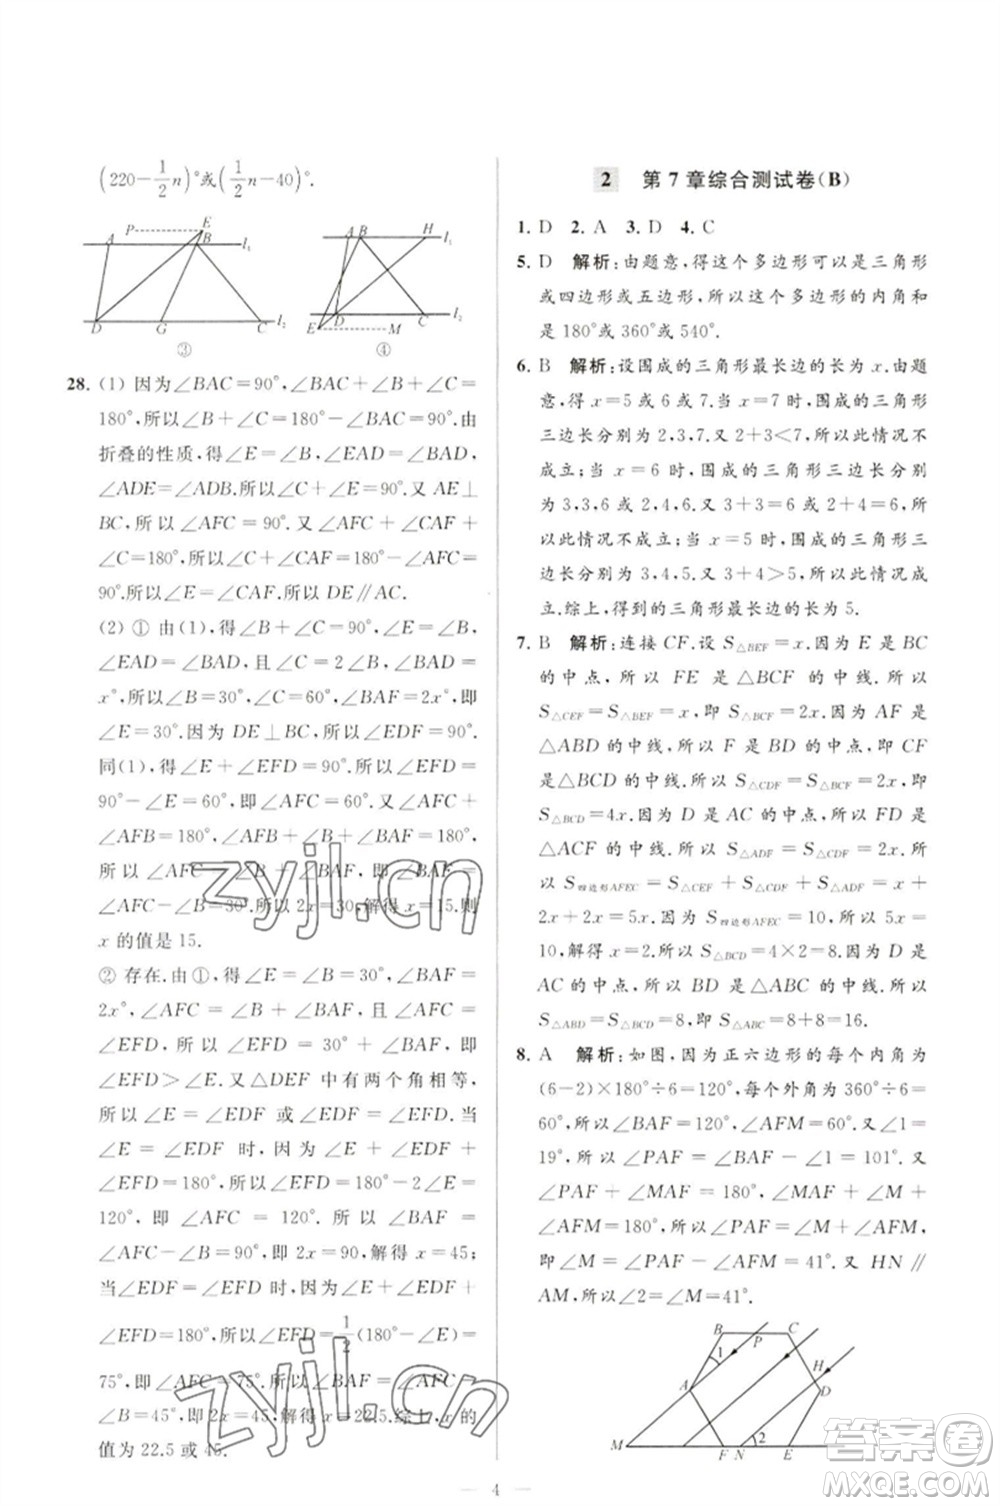 (220−1/2n)°或(1/2n−40)°.
P E
A B l₁
D G C l₂
③
A B H l₁
E D M C l₂
④
28. (1) 因为∠BAC=90°,∠BAC+∠B+∠C=
180°,所以∠B+∠C=180°−∠BAC=90°.由
折叠的性质,得∠E=∠B,∠EAD=∠BAD,
∠ADE=∠ADB.所以∠C+∠E=90°.又AE⊥
BC,所以∠AFC=90°.又∠AFC+∠CAF+
∠C=180°,所以∠C+∠CAF=180°−∠AFC=
90°.所以∠E=∠CAF.所以DE∥AC.
(2) ① 由(1),得∠B+∠C=90°,∠E=∠B,
∠EAD=∠BAD,且∠C−∠B=30°,∠BAD=
x°,所以∠B=30°,∠C=60°,∠BAF=2x°,即
∠E=30°.因为DE⊥BC,所以∠EFD=90°.
同(1),得∠E+∠EFD=90°,所以∠EFD=
90°−∠E=60°,即∠AFC=60°.又∠AFC+
∠AFB=180°,∠AFB+∠B+∠BAF=180°,
所以∠AFC=∠B+∠BAF,即∠BAF=
∠AFC−∠B=30°.所以2x=30,解得x=15.则
x的值是15.
② 存在.由①,得∠E=∠B=30°,∠BAF=
2x°,∠AFC=∠B+∠BAF,∠AFC=
∠EFD,所以∠EFD=30°+∠BAF,即
∠EFD>∠E.又△DEF中有两个角相等,
所以∠E=∠EDF或∠EDF=∠EFD.当
∠E=∠EDF时,因为∠E+∠EDF+
∠EFD=180°,所以∠EFD=180°−2∠E=
120°,即∠AFC=120°.所以∠BAF=
∠AFC−∠B=90°,即2x=90,解得x=45;
当∠EDF=∠EFD时,因为∠E+∠EDF+
∠EFD=180°,所以∠EFD=1/2(180°−∠E)=
75°,即∠AFC=75°.所以∠BAF=∠AFC−
∠B=45°,即2x=45,解得x=22.5.综上,x的
值为22.5或45.
2 第7章综合测试卷(B)
1. D 2. A 3. D 4. C
5. D 解析:由题意,得这个多边形可以是三角形
或四边形或五边形,所以这个多边形的内角和
是180°或360°或540°.
6. B 解析:设围成的三角形最长边的长为x.由题
意,得x=5或6或7.当x=7时,围成的三角形
三边长分别为2,3,7.又2+3<7,所以此情况不
成立;当x=6时,围成的三角形三边长分别为
3,3,6或2,4,6.又3+3=6或2+4=6,所以
此情况不成立;当x=5时,围成的三角形三
边长分别为3,4,5.又3+4>5,所以此情况成
立.综上,得到的三角形最长边的长为5.
7. B 解析:连接CF.设S△BEF=x.因为E是BC
的中点,所以FE是△BCF的中线.所以
S△CEF=S△BEF=x,即S△BCF=2x.因为AF是
△ABD的中线,所以F是BD的中点,即CF
是△BCD的中线.所以S△CDF=S△BCF=2x,即
S△BCD=4x.因为D是AC的中点,所以FD是
△ACF的中线.所以S△ADF=S△CDF=2x.所以
S四边形AFEC=S△CEF+S△CDF+S△ADF=x+
2x+2x=5x.又S四边形AFEC=10,所以5x=
10,解得x=2.所以S△BCD=4×2=8.因为D是
AC的中点,所以BD是△ABC的中线.所以
S△ABD=S△BCD=8,即S△ABC=8+8=16.
8. A 解析:如图,因为正六边形的每个内角为
(6−2)×180°÷6=120°,每个外角为360°÷6=
60°,所以∠BAF=120°,∠AFM=60°.又∠1=
19°,所以∠PAF=∠BAF−∠1=101°.又
∠PAF+∠MAF=180°,∠MAF+∠M+
∠AFM=180°,所以∠PAF=∠M+∠AFM,
即∠M=∠PAF−∠AFM=41°.又HN∥
AM,所以∠2=∠M=41°.
B P C
1
H
A D
2
M F N E
4
zyjl.cn
zyjl.cn
答案圈
MXQE.COM